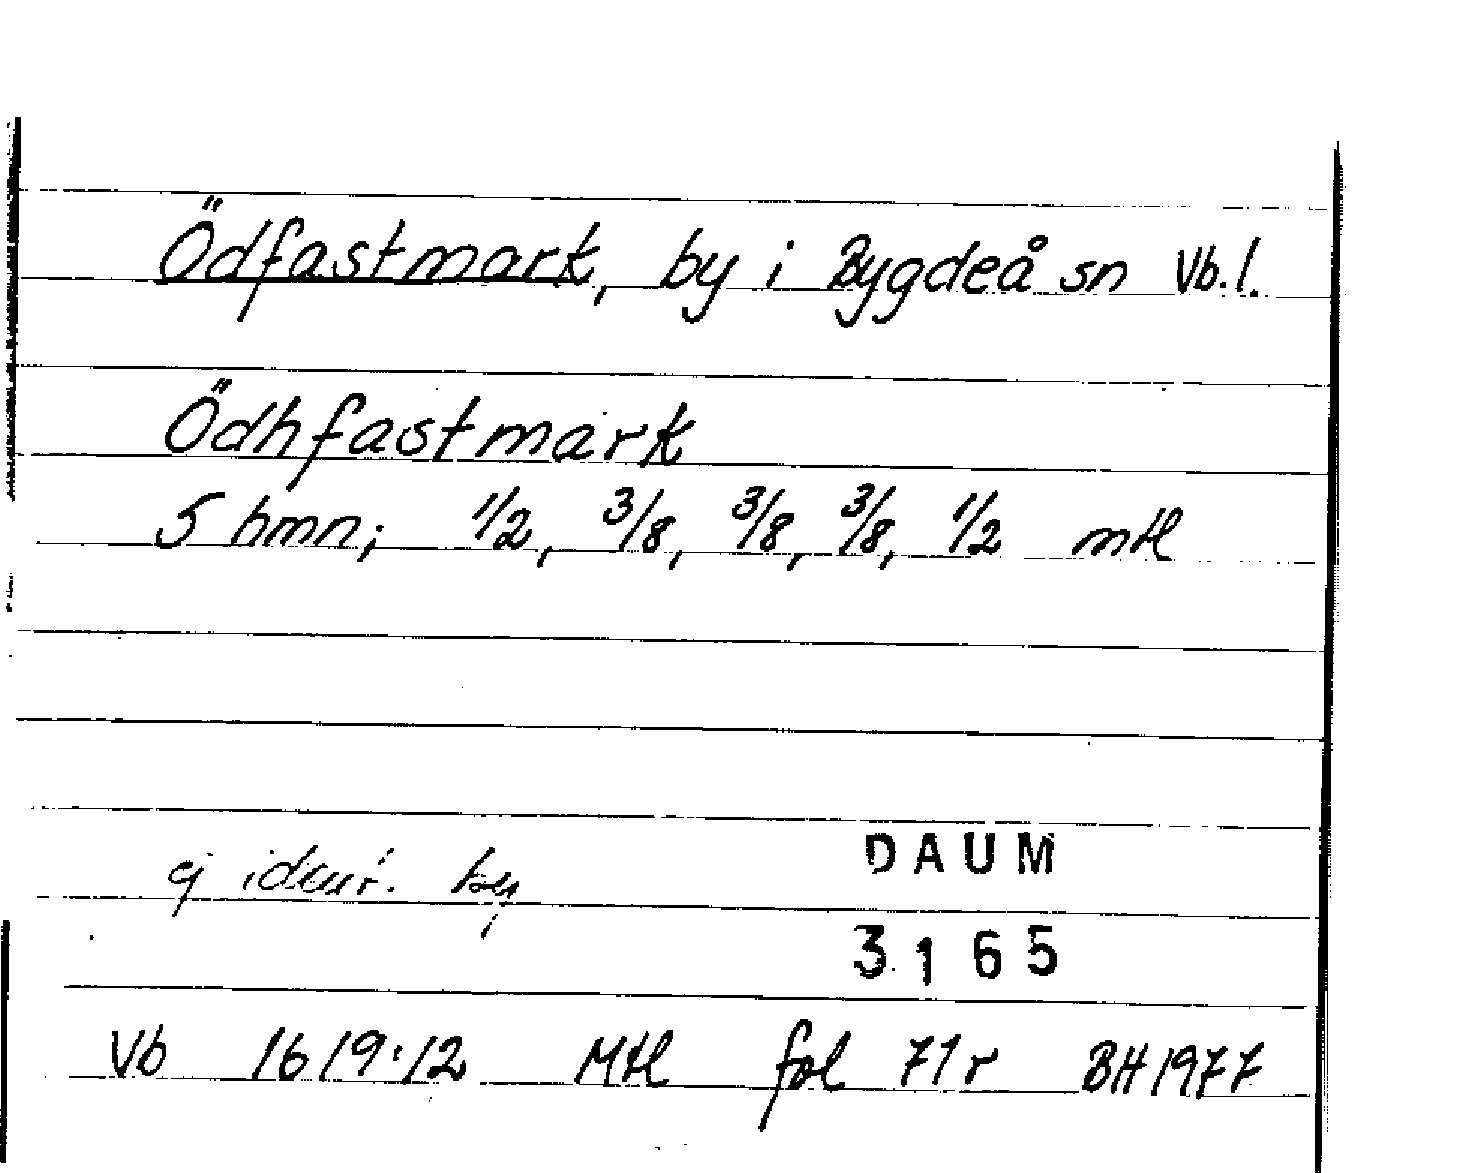 Ödfastmark, by i Bygdeå sn Vb.l.
Ödhfastmark
5 hmn; 1/2, 3/8, 3/8, 3/8, 1/2 mtl
ej by
DAUM
3165
Vb 1619:12 Mtl fol 71r BH1977